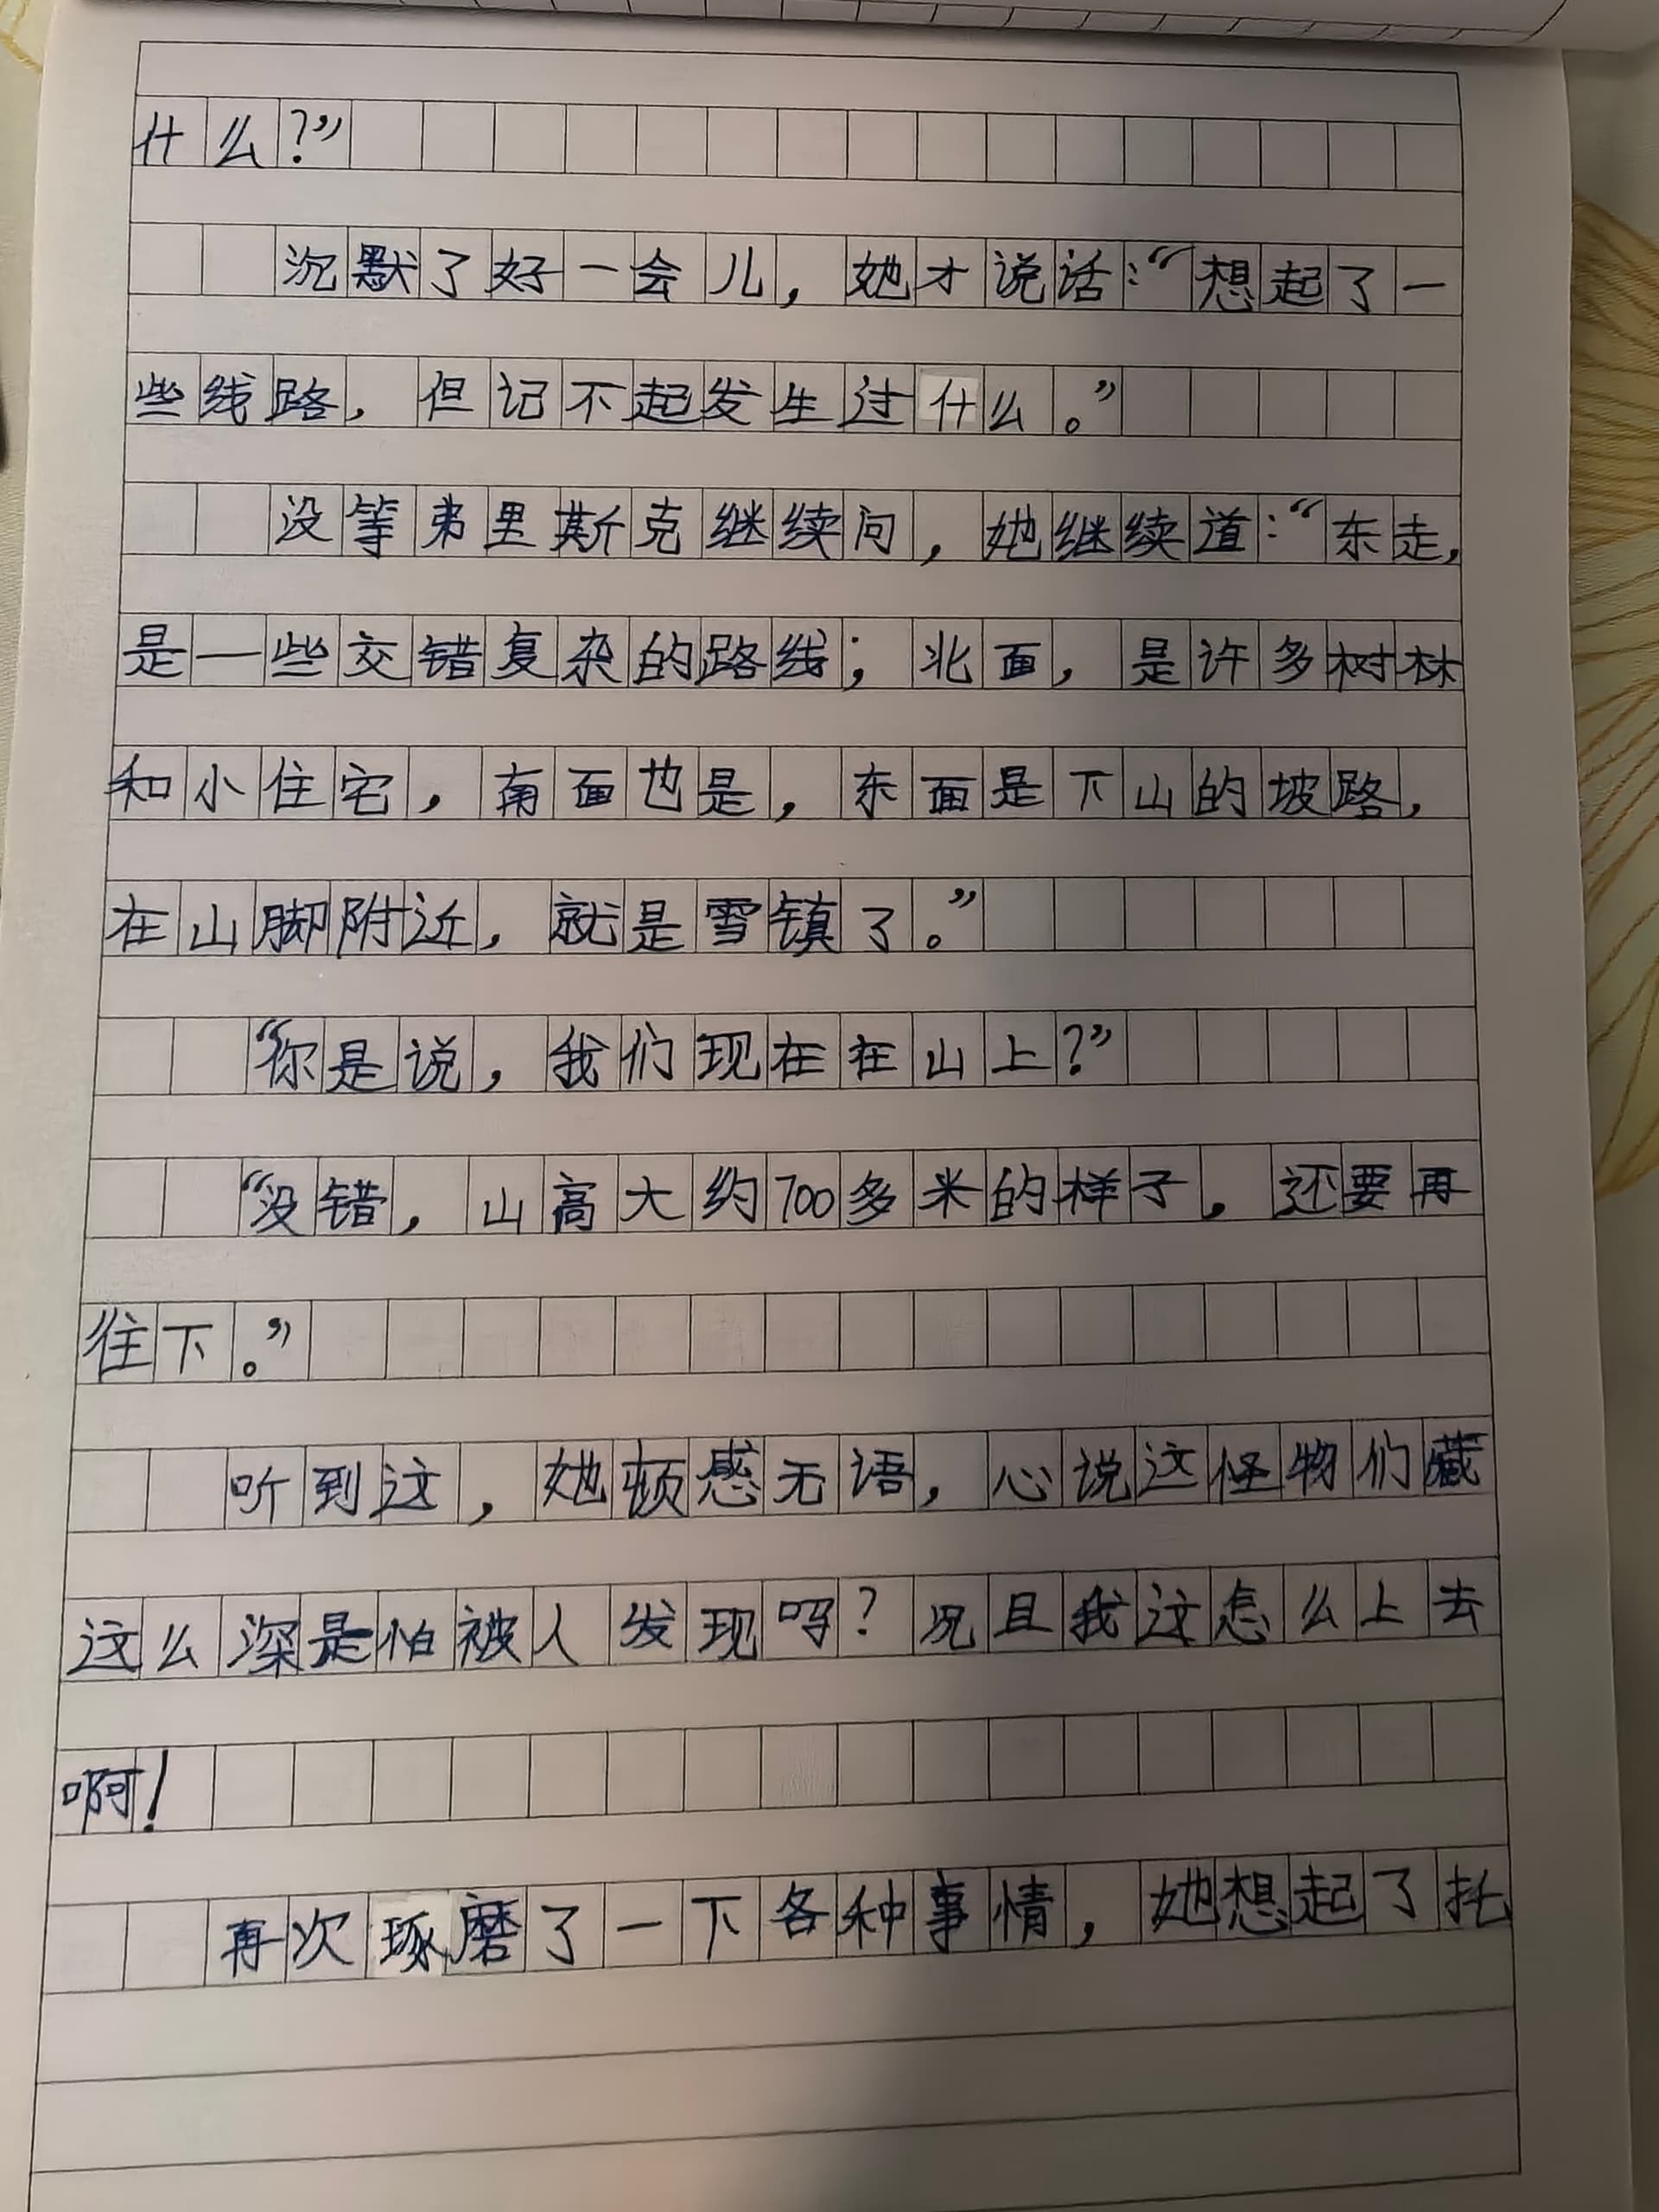 什么？”
沉默了好一会儿，她才说话：“想起了一
些线路，但记不起发生过什么。”
没等弗里斯克继续问，她继续道：“东走，
是一些交错复杂的路线；北面，是许多树林
和小住宅，南面也是，东面是下山的坡路，
在山脚附近，就是雪镇了。”
“你是说，我们现在在山上？”
“没错，山高大约700多米的样子。还要再
往下。”
听到这，她顿感无语，心说这怪物们藏
这么深是怕被人发现吗？况且我这怎么上去
啊！
再次琢磨了一下各种事情，她想起了托